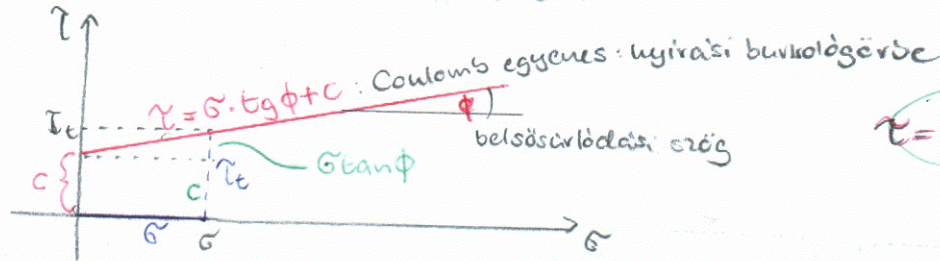 τ
τ = σ · tg ϕ + c : Coulomb egyenes : nyírási burkológörbe
ϕ
τt
belsősúrlódási szög
τ =
σ tan ϕ
c
c
τt
σ
σ
σ